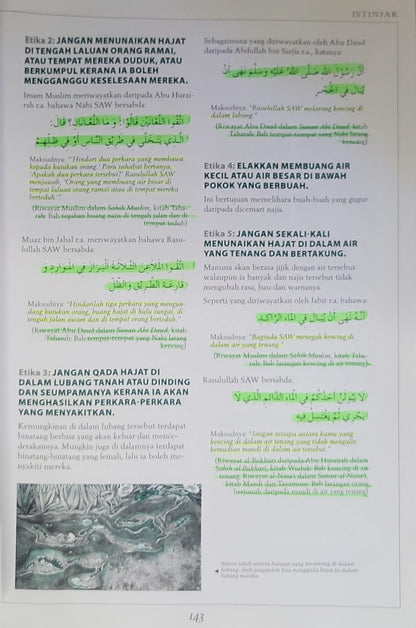 ISTINJAK
Etika 2: JANGAN MENUNAIKAN HAJAT
DI TENGAH LALUAN ORANG RAMAI,
ATAU TEMPAT MEREKA DUDUK, ATAU
BERKUMPUL KERANA IA BOLEH
MENGGANGGU KESELESAAN MEREKA.
Imam Muslim meriwayatkan daripada Abu Hurai-
rah r.a. bahawa Nabi SAW bersabda:
اتَّقُوا اللَّعَّانَيْنِ قَالُوا: وَمَا اللَّعَّانَانِ؟ قَالَ:
الَّذِي يَتَخَلَّى فِي طَرِيقِ النَّاسِ أَوْ فِي ظِلِّهِمْ
Maksudnya: "Hindari dua perkara yang membawa
kepada kutukan orang.' Para sahabat bertanya,
'Apakah dua perkara tersebut?' Rasulullah SAW
menjawab, 'Orang yang membuang air besar di
tempat laluan orang ramai atau di tempat mereka
berteduh.'"
(Riwayat Muslim dalam Sahih Muslim, kitab Taha-
rah: Bab tegahan buang najis di tengah jalan dan di
tempat teduh)
Muaz bin Jabal r.a. meriwayatkan bahawa Rasu-
lullah SAW bersabda:
اتَّقُوا الْمَلَاعِنَ الثَّلَاثَةَ الْبَرَازَ فِي الْمَوَارِدِ وَ
قَارِعَةِ الطَّرِيقِ وَالظِّلِّ
Maksudnya: "Hindarilah tiga perkara yang mengun-
dang kutukan orang, buang hajat di hulu sungai, di
tengah jalan awam dan di tempat orang berteduh."
(Riwayat Abu Daud dalam Sunan Abu Daud, kitab
Taharah: Bab tempat-tempat yang Nabi larang
kencing)
Etika 3: JANGAN QADA HAJAT DI
DALAM LUBANG TANAH ATAU DINDING
DAN SEUMPAMANYA KERANA IA AKAN
MENGHASILKAN PERKARA-PERKARA
YANG MENYAKITKAN.
Kemungkinan di dalam lubang tersebut terdapat
binatang berbisa yang akan keluar dan mence-
derakannya. Mungkin juga di dalamnya terdapat
binatang-binatang yang lemah, lalu ia boleh me-
nyakiti mereka.
Sebagaimana yang diriwayatkan oleh Abu Daud
daripada Abdullah bin Sarjis r.a., katanya:
أَنَّ رَسُولَ اللَّهِ صَلَّى اللَّهُ عَلَيْهِ وَسَلَّمَ نَهَى أَنْ
يُبَالَ فِي الْجُحْرِ
Maksudnya: "Rasulullah SAW melarang kencing di
dalam lubang."
(Riwayat Abu Daud dalam Sunan Abu Daud, kitab
Taharah: Bab tempat-tempat yang Nabi larang
kencing)
Etika 4: ELAKKAN MEMBUANG AIR
KECIL ATAU AIR BESAR DI BAWAH
POKOK YANG BERBUAH.
Ini bertujuan memelihara buah-buah yang gugur
daripada dicemari najis.
Etika 5: JANGAN SEKALI-KALI
MENUNAIKAN HAJAT DI DALAM AIR
YANG TENANG DAN BERTAKUNG.
Manusia akan berasa jijik dengan air tersebut
walaupun ia banyak dan najis tersebut tidak
mengubah rasa, bau dan warnanya.
Seperti yang diriwayatkan oleh Jabir r.a. bahawa:
أَنَّهُ نَهَى أَنْ يُبَالَ فِي الْمَاءِ الرَّاكِدِ
Maksudnya: "Baginda SAW menegah kencing di
dalam air yang tenang."
(Riwayat Muslim dalam Sahih Muslim, kitab Taha-
rah: Bab larangan kencing di dalam air tenang)
Rasulullah SAW bersabda:
لَا يَبُولَنَّ أَحَدُكُمْ فِي الْمَاءِ الدَّائِمِ الَّذِي لَا
يَجْرِي ثُمَّ يَغْتَسِلُ فِيهِ
Maksudnya: "Jangan sesiapa antara kamu yang
kencing di dalam air tenang yang tidak mengalir,
kemudian mandi di dalam air tersebut."
(Riwayat al-Bukhari daripada Abu Hurairah dalam
Sahih al-Bukhari, kitab Wuduk: Bab kencing di air
tenang; Riwayat al-Nasa'i dalam Sunan al-Nasa'i,
kitab Mandi dan Tayamum: Bab larangan orang
berjunub daripada mandi di air yang tenang)
Semut ialah antara haiwan yang bersarang di dalam
lubang. Jadi janganlah kita mengqada hajat ke dalam
lubang mereka.
143